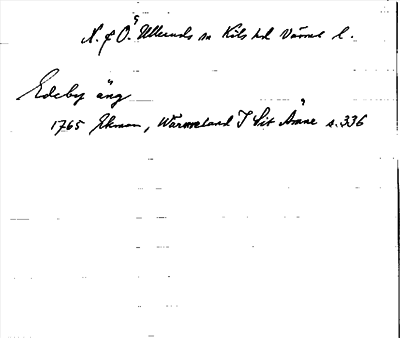 N. & Ö. Ulleruds sn Kils hd Värml l.
Edeby äng
1765 Ekman, Wärmeland I Sit Ämne s. 336